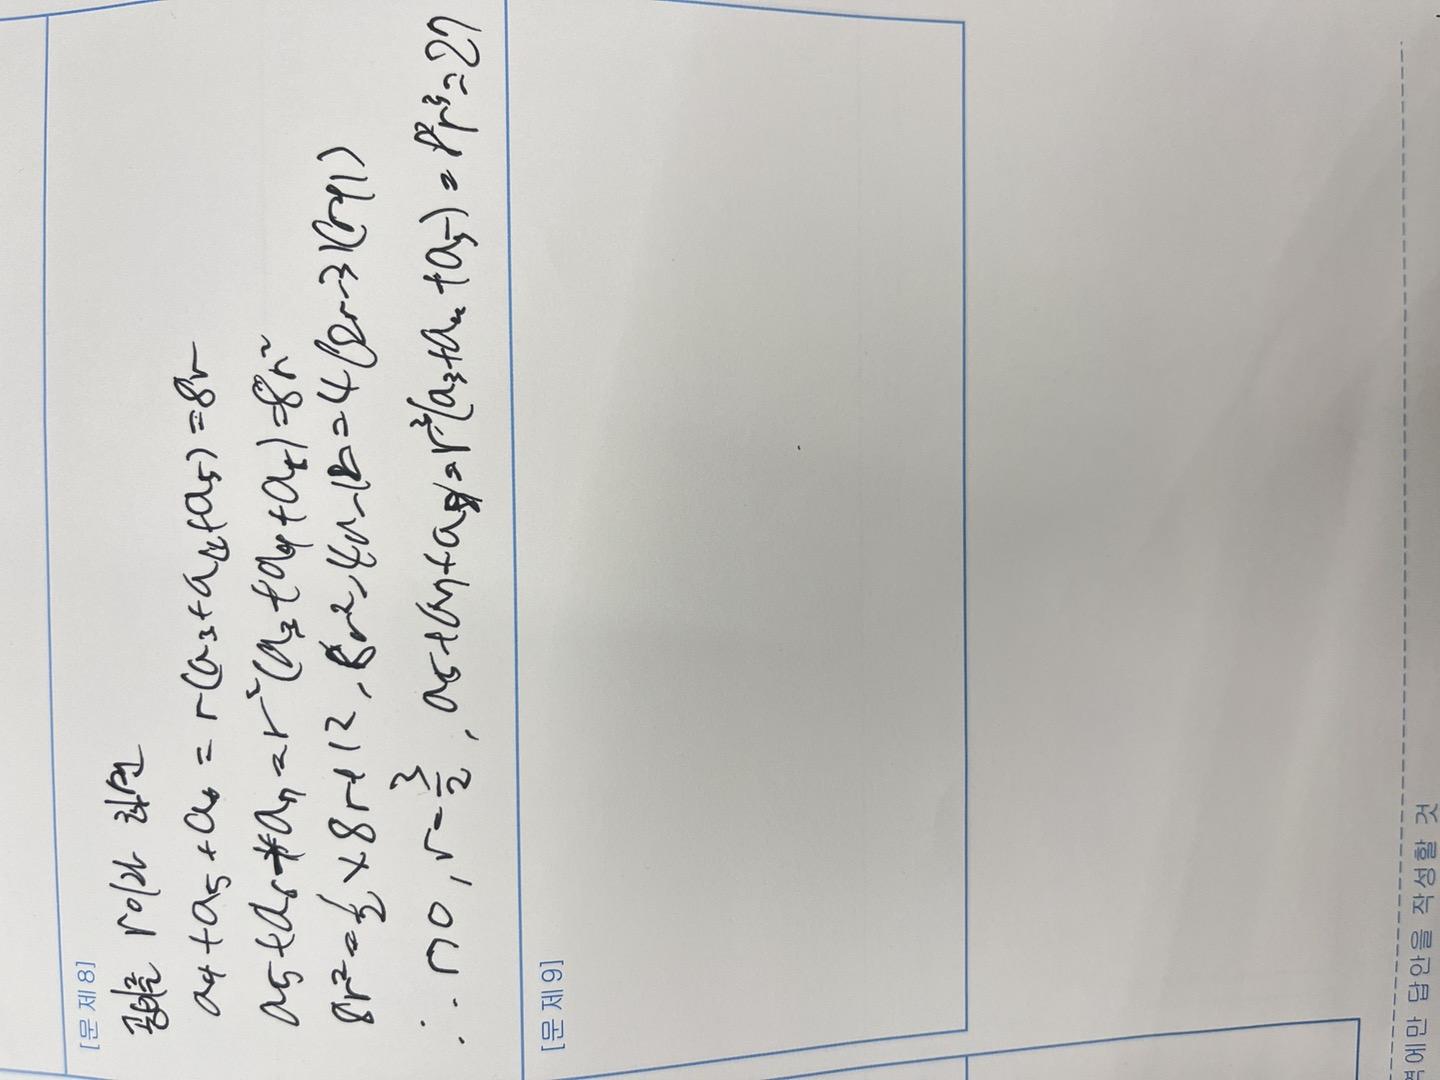 [문 제 8]
공비를 r이라 하면
a₄+a₅+a₆ = r(a₃+a₄+a₅)=8r
a₅+a₆+a₇=r²(a₃+a₄+a₅)=8r²
8r²=½×8r+12, 8r²-4r-12=4(2r-3)(r+1)
∴ r>0, r=3/2, a₆+a₇+a₈=r³(a₃+a₄+a₅)=8r³=27
[문 제 9]
답안을 작성할 것